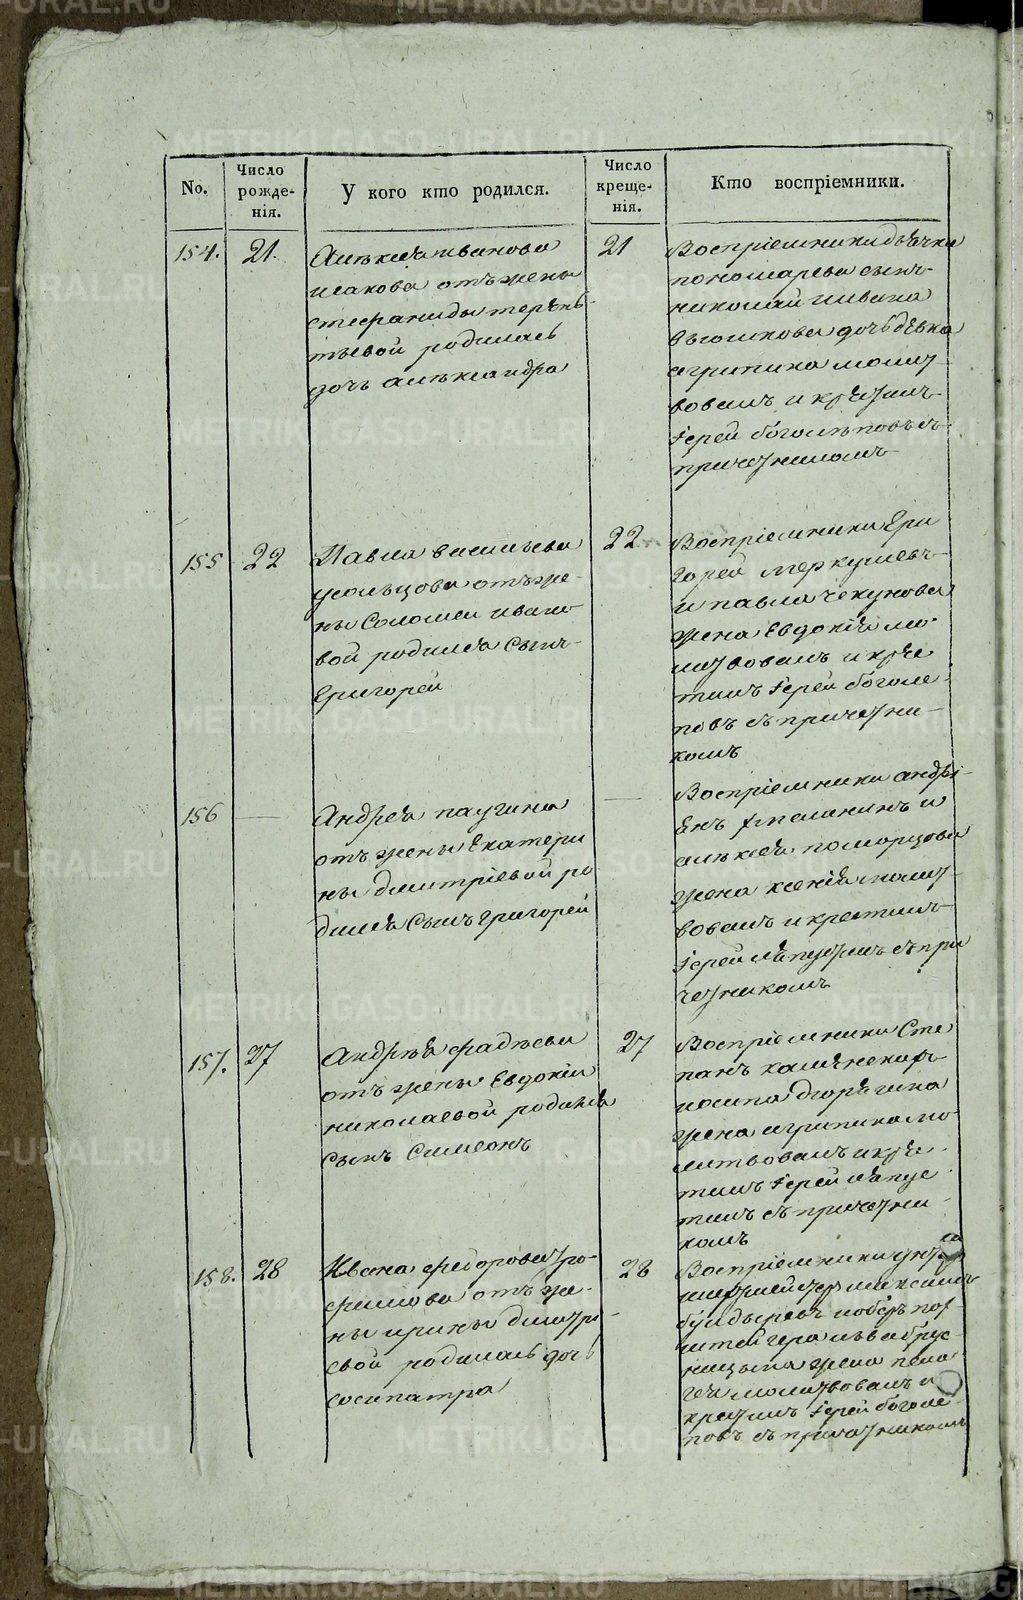 No.
Число рожде-
нія.
У кого кто родился.
Число креще-
нія.
Кто воспріемники.
154.
21.
Алѣксѣя иванова
исакова отъ жены
стефаниды терѣнь
тьевой родилась
дочь алѣксандра
21
Воспріемники дьячка
пономарева сынъ
николай ивана
дочь дѣвка
агрипина молит
вовалъ и крестилъ
Іерей боголѣповъ съ
причетникомъ
155
22
Павла васильева
усольцова отъ же-
ны Соломеи ивано
вой родился сынъ
Григорей
22
Воспріемники Гри
горей меркурьевъ
и павла чекунова
жена Евдокія мо
литвовалъ и кре
тилъ Іерей боголе
повъ съ причетни
комъ
156
Андрея пачгина
отъ жены Екатери
ны дмитріевой ро
дился сынъ григорей
Воспріемники андрі
янъ и
алѣксѣя поморцова
жена ксенія молит
вовалъ и крестилъ
Іерей съ при
четникомъ
157.
27
Андрѣя фадѣева
отъ жены Евдокіи
николаевой родился
Сынъ Симеонъ
27
Воспріемники Сте
панъ
осипа
жена агрипина мо
литвовалъ и кре
тилъ Іерей
съ причетни
комъ
158.
28
Ивана федорова тро-
фимова отъ же-
ны ирины дмитрі
евой родилась дочь
сосипатра
28
Воспріемники унтеръ
шихтмейстеръ максимъ
булдыревъ и оберъ
штейгера льва брус
ницына жена пела
гея молитвовалъ и
крестилъ Іерей боголе
повъ съ причетникомъ
METRIKI.GASO-URAL.RU